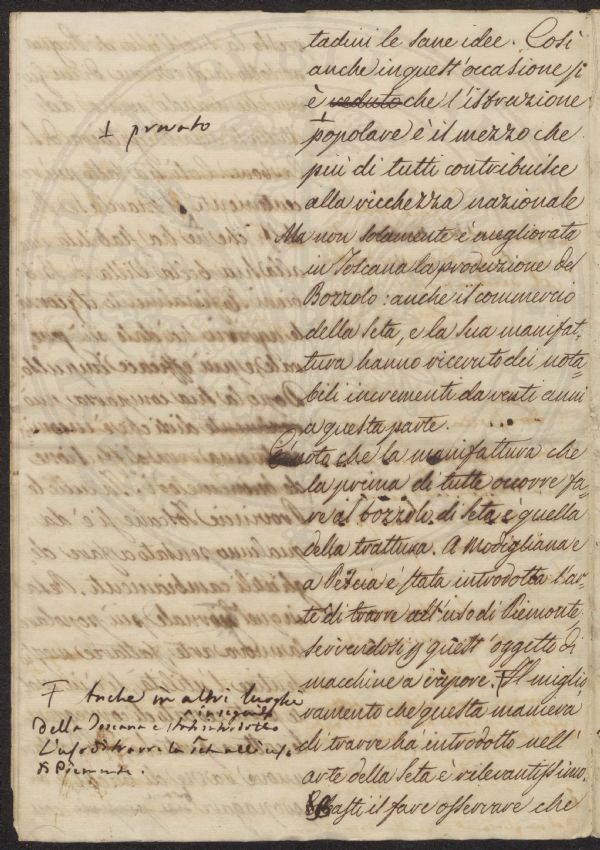 tadini le sane idee. Così
anche in quest'occasione si
è veduto che l'istruzione
⊥ provato
popolare è il mezzo che
più di tutti contribuisce
alla ricchezza nazionale
Ma non solamente è megliorata
in Toscana la produzione del
Bozzolo: anche il commercio
della Seta, e la sua manifat-
tura hanno ricevuto dei nota-
bili incrementi da venti anni
a questa parte.
È noto che la manifattura che
la prima di tutte occorre fa-
re al bozzolo di Seta è quella
della trattura. A Modigliana e
a Pescia è stata introdotta l'ar-
te di trarre all'uso di Piemonte
servendosi p quest'oggetto di
macchine a vapore. F Il miglio
ramento che questa maniera
di trarre ha introdotto nell'
arte della Seta è rilevantissimo.
Basti il fare osservare che
F Anche in altri luoghi
della Toscana è stato introdotto
L'uso di trarre la seta all'uso
di Piemonte.